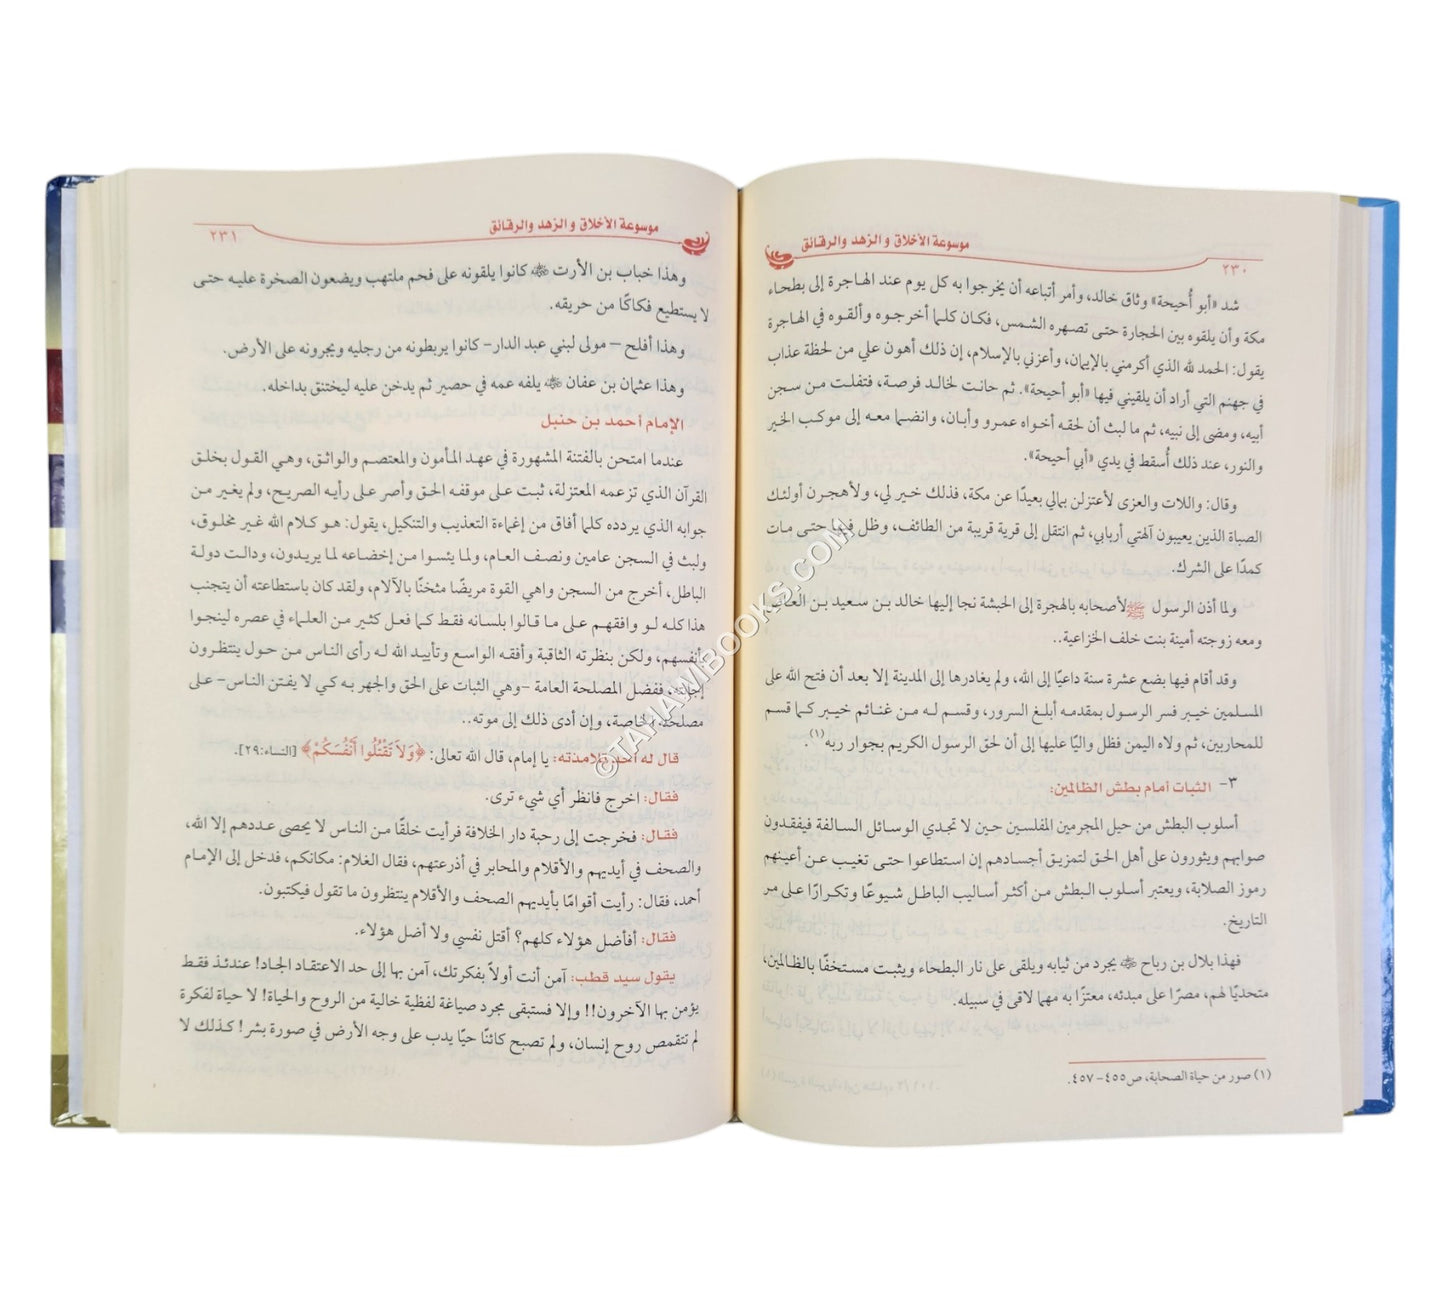 موسوعة الأخلاق والزهد والرقائق
٢٣٠
شد «أبو أُحيحة» وثاق خالد، وأمر أتباعه أن يخرجوا به كل يوم عند الهاجرة إلى بطحاء
مكة وأن يلقوه بين الحجارة حتى تصهره الشمس، فكان كلما أخرجوه وألقوه في الهاجرة
يقول: الحمد لله الذي أكرمني بالإيمان، وأعزني بالإسلام، إن ذلك أهون علي من لحظة عذاب
في جهنم التي أراد أن يلقيني فيها «أبو أحيحة». ثم حانت لخالد فرصة، فتفلت من سجن
أبيه، ومضى إلى نبيه، ثم ما لبث أن لحقه أخواه عمرو وأبان، وانضما معه إلى موكب الخير
والنور، عند ذلك أُسقط في يدي «أبي أحيحة».
وقال: واللات والعزى لأعتزلن بمالي بعيدًا عن مكة، فذلك خير لي، ولأهجرن أولئك
الصباة الذين يعيبون آلهتي أربابي، ثم انتقل إلى قرية قريبة من الطائف، وظل فيها حتى مات
كمدًا على الشرك.
ولما أذن الرسول ﷺ لأصحابه بالهجرة إلى الحبشة نجا إليها خالد بن سعيد بن العاص
ومعه زوجته أمينة بنت خلف الخزاعية..
وقد أقام فيها بضع عشرة سنة داعيًا إلى الله، ولم يغادرها إلى المدينة إلا بعد أن فتح الله على
المسلمين خيبر فسر الرسول بمقدمه أبلغ السرور، وقسم له من غنائم خيبر كما قسم
للمحاربين، ثم ولاه اليمن فظل واليًا عليها إلى أن لحق الرسول الكريم بجوار ربه(١).
٣- الثبات أمام بطش الظالمين:
أسلوب البطش من حيل المجرمين المفلسين حين لا تجدي الوسائل السالفة فيفقدون
صوابهم ويثورون على أهل الحق لتمزيق أجسادهم إن استطاعوا حتى تغيب عن أعينهم
رموز الصلابة، ويعتبر أسلوب البطش من أكثر أساليب الباطل شيوعًا وتكرارًا على مر
التاريخ.
فهذا بلال بن رباح ﷺ يجرد من ثيابه ويلقى على نار البطحاء ويثبت مستخفًا بالظالمين،
متحديًا لهم، مصرًا على مبدئه، معتزًا به مهما لاقى في سبيله.
(١) صور من حياة الصحابة، ص٤٥٥-٤٥٧.
موسوعة الأخلاق والزهد والرقائق
٢٣١
وهذا خباب بن الأرت كانوا يلقونه على فحم ملتهب ويضعون الصخرة عليه حتى
لا يستطيع فكاكًا من حريقه.
وهذا أفلح – مولى لبني عبد الدار– كانوا يربطونه من رجليه ويجرونه على الأرض.
وهذا عثمان بن عفان يلفه عمه في حصير ثم يدخن عليه ليختنق بداخله.
الإمام أحمد بن حنبل
عندما امتحن بالفتنة المشهورة في عهد المأمون والمعتصم والواثق، وهي القول بخلق
القرآن الذي تزعمه المعتزلة، ثبت على موقفه الحق وأصر على رأيه الصريح، ولم يغير من
جوابه الذي يردده كلما أفاق من إغماءة التعذيب والتنكيل، يقول: هو كلام الله غير مخلوق،
ولبث في السجن عامين ونصف العام، ولما يئسوا من إخضاعه لما يريدون، ودالت دولة
الباطل، أخرج من السجن واهي القوة مريضًا مثخنًا بالآلام، ولقد كان باستطاعته أن يتجنب
هذا كله لو وافقهم على ما قالوا بلسانه فقط كما فعل كثير من العلماء في عصره لينجوا
بأنفسهم، ولكن بنظرته الثاقبة وأفقه الواسع وتأييد الله له رأى الناس من حول ينتظرون
إجابته، ففضل المصلحة العامة –وهي الثبات على الحق والجهر به كي لا يفتن الناس– على
مصلحته الخاصة، وإن أدى ذلك إلى موته..
قال له أحد تلامذته: يا إمام، قال الله تعالى: ﴿وَلَا تَقْتُلُوا أَنْفُسَكُمْ﴾ [النساء:٢٩].
فقال: اخرج فانظر أي شيء ترى.
فقال: فخرجت إلى رحبة دار الخلافة فرأيت خلقًا من الناس لا يحصى عددهم إلا الله،
والصحف في أيديهم والأقلام والمحابر في أذرعتهم، فقال الغلام: مكانكم، فدخل إلى الإمام
أحمد، فقال: رأيت أقوامًا بأيديهم الصحف والأقلام ينتظرون ما تقول فيكتبون.
فقال: أفأضل هؤلاء كلهم؟ أقتل نفسي ولا أضل هؤلاء.
يقول سيد قطب: آمن أنت أولاً بفكرتك، آمن بها إلى حد الاعتقاد الجاد! عندئذ فقط
يؤمن بها الآخرون!! وإلا فستبقى مجرد صياغة لفظية خالية من الروح والحياة! لا حياة لفكرة
لم تتقمص روح إنسان، ولم تصبح كائنًا حيًا يدب على وجه الأرض في صورة بشر! كذلك لا
©TAHAMIBOOKS.COM